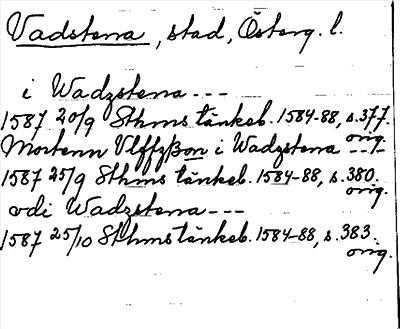 Vadstena, stad, Österg. l.
i Wadzstena ---
1587 20/9 Sthms tänkeb. 1584-88, s. 377.
orig.
Mortenn Vlffzßon i Wadzstena ---
1587 25/9 Sthms tänkeb. 1584-88, s. 380.
orig.
vdi Wadzstena ---
1587 25/10 Sthms tänkeb. 1584-88, s. 383.
orig.